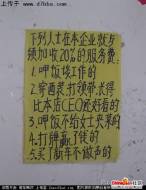 上传于
下列人士在本企业就与
须加收20%的服务费:
1.呷饭谈工作的
2.穿西装.打领带.长得
比本店CEO还好看的
3.呷饭不给女士夹菜的
4.打牌赢了钱的
5.买了新车不做声的